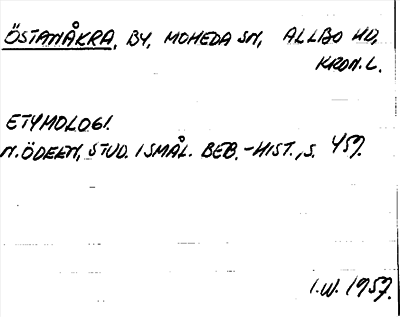 ÖSTANÅKRA, BY, MOHEDA SN, ALLBO HD,
KRON. L.
ETYMOLOGI.
N. ÖDEEN, STUD. I SMÅL. BEB.-HIST., S. 457.
I.W. 1957.